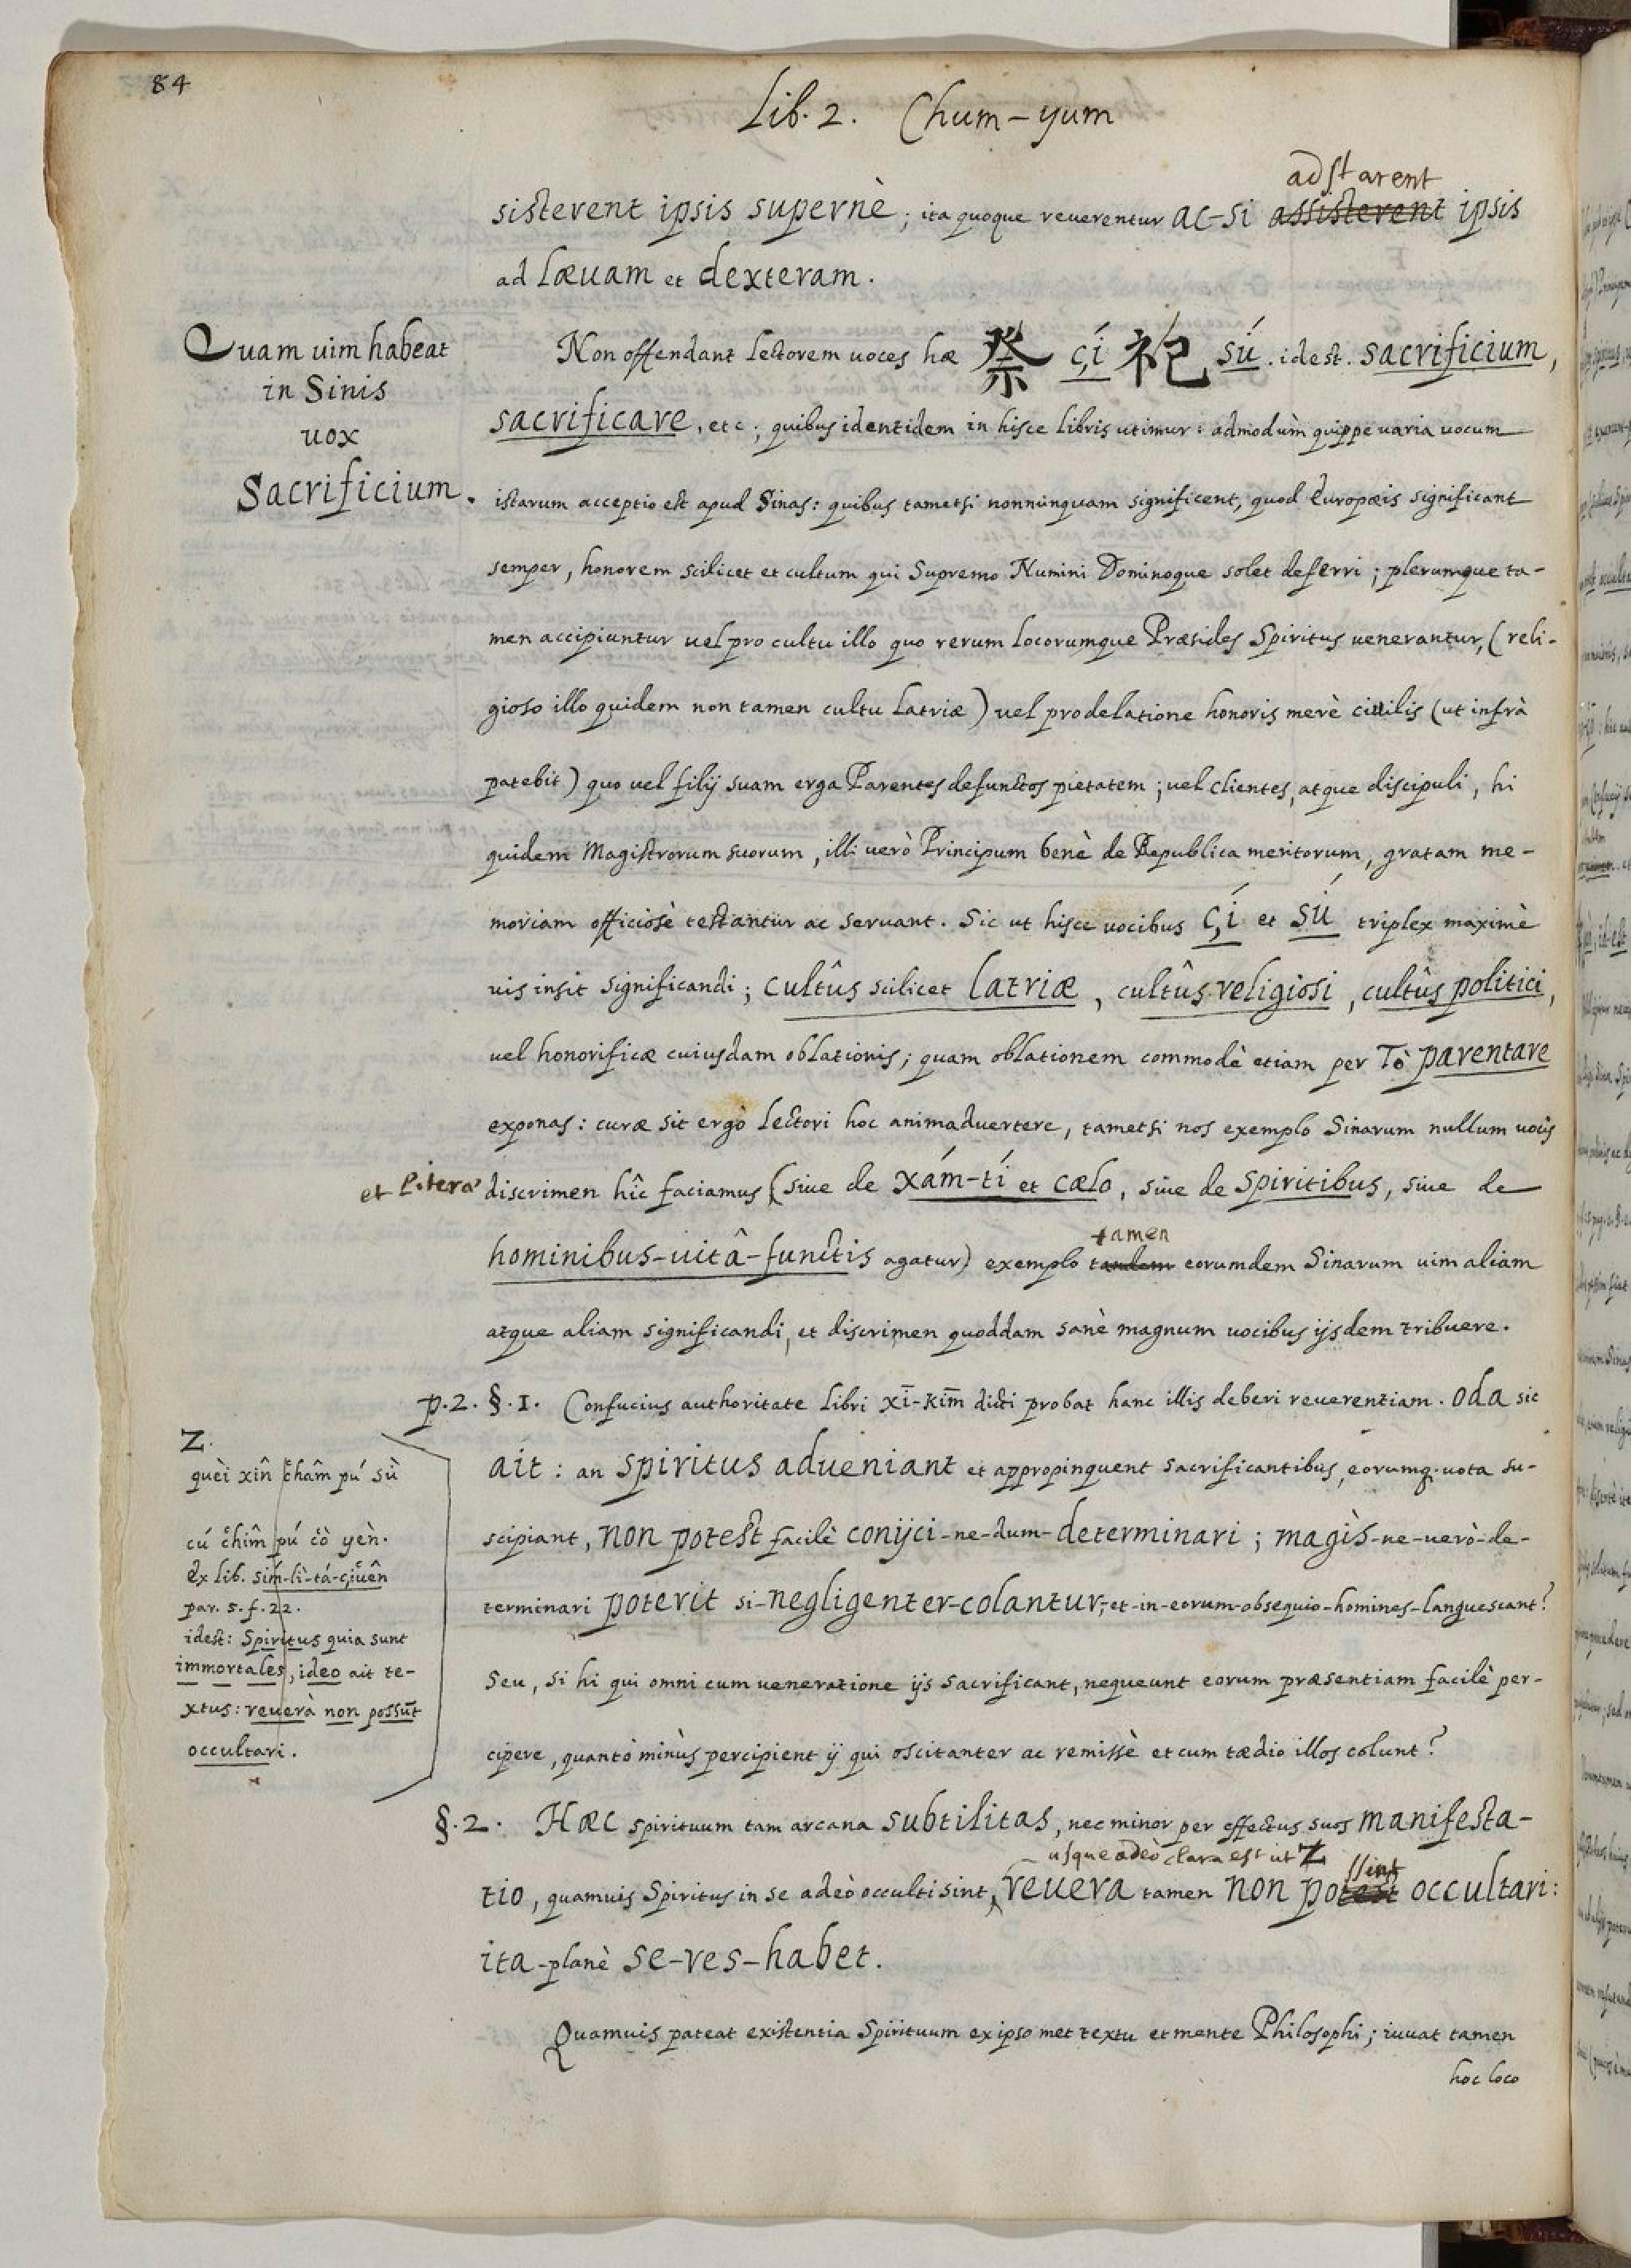 84
Lib. 2. Chum-yum
adstarent
sisterent ipsis supernè; ita quoque reuerentur ac-si assisterent ipsis
ad læuam et dexteram.
Quam uim habeat
in Sinis
uox
Sacrificium.
Non offendant lectorem uoces hæ 祭 çí 祀 sú. idest. sacrificium,
sacrificare, etc; quibus identidem in hisce libris utimur: admodùm quippe uaria uocum
istarum acceptio est apud Sinas: quibus tametsi nonnùnquam significent, quod Europæis significant
semper, honorem scilicet et cultum qui Supremo Numini Dominoque solet deferri; plerumque ta-
men accipiuntur uel pro cultu illo quo rerum locorumque Præsides Spiritus uenerantur, (reli-
gioso illo quidem non tamen cultu latriæ) uel pro delatione honoris merè ciuilis (ut infrà
patebit) quo uel filij suam erga Parentes defunctos pietatem; uel clientes, atque discipuli, hi
quidem Magistrorum suorum, illi uerò Principum benè de Republica meritorum, gratam me-
moriam officiosè testantur ac seruant. Sic ut hisce uocibus çí et sú triplex maximè
uis insit significandi; cultûs scilicet latriæ, cultûs religiosi, cultûs politici,
uel honorificæ cuiusdam oblationis; quam oblationem commodè etiam per Tò parentare
exponas: curæ sit ergò lectori hoc animaduertere, tametsi nos exemplo Sinarum nullum uocis
et literæ discrimen hîc faciamus (siue de xám-tí et cælo, siue de spiritibus, siue de
tamen
hominibus-uitâ-functis agatur) exemplo tandem eorumdem Sinarum uim aliam
atque aliam significandi, et discrimen quoddam sanè magnum uocibus ijsdem tribuere.
p.2. §.1. Confucius authoritate libri xī-kīm dicti probat hanc illis deberi reuerentiam. Oda sic
ait: an spiritus adueniant et appropinquent sacrificantibus, eorumq. uota su-
scipiant, non potest facilè conijci-ne-dum-determinari; magìs-ne-uerò-de-
terminari poterit si-negligenter-colantur,-et-in-eorum-obsequio-homines-languescant?
seu, si hi qui omni cum ueneratione ijs sacrificant, nequeunt eorum præsentiam facilè per-
cipere, quantò minùs percipient ij qui oscitanter ac remissè et cum tædio illos colunt?
Z.
quèi xîn chăm pú sù
cú chîm pú cò yèn.
Ex lib. sím-lì-tá-çiuên
par. 5. f. 22.
idest: Spiritus quia sunt
immortales, ideo ait te-
xtus: reuerà non possūt
occultari.
§.2. Hæc spirituum tam arcana subtilitas, nec minor per effectus suos manifesta-
usque adeò clara est ut Z ssint
tio, quamuis Spiritus in se adeò occulti sint, reuera tamen non potest occultari:
ita-planè se-res-habet.
Quamuis pateat existentia Spirituum ex ipso met textu et mente Philosophi; iuuat tamen
hoc loco